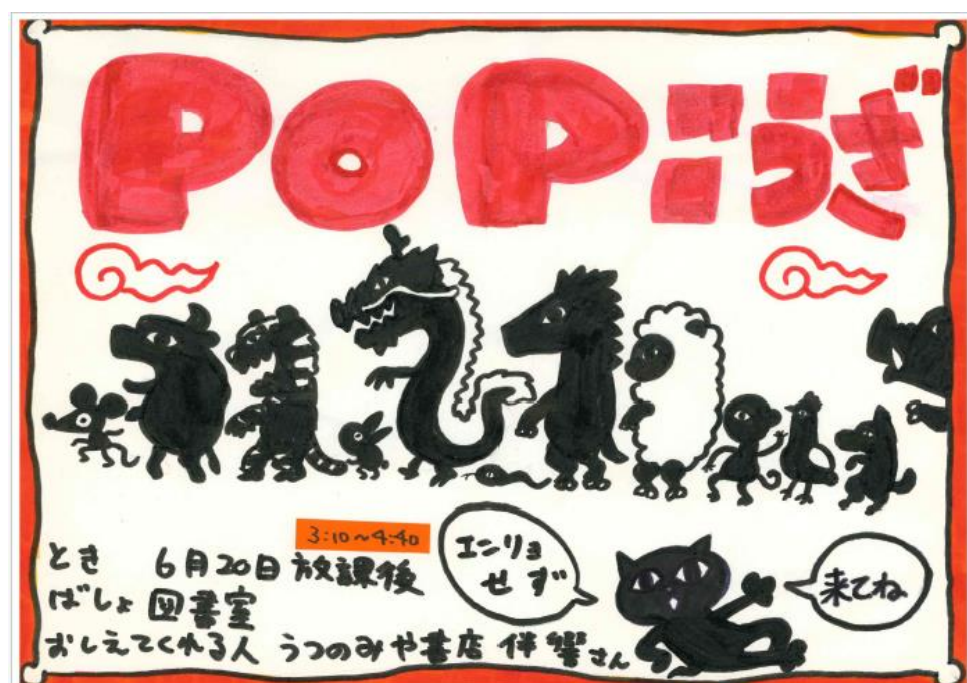 POPこうざ
3:10～4:40
とき 6月20日 放課後
ばしょ 図書室
おしえてくれる人 うつのみや書店 伴 響さん
エンリョ
せず
来てね